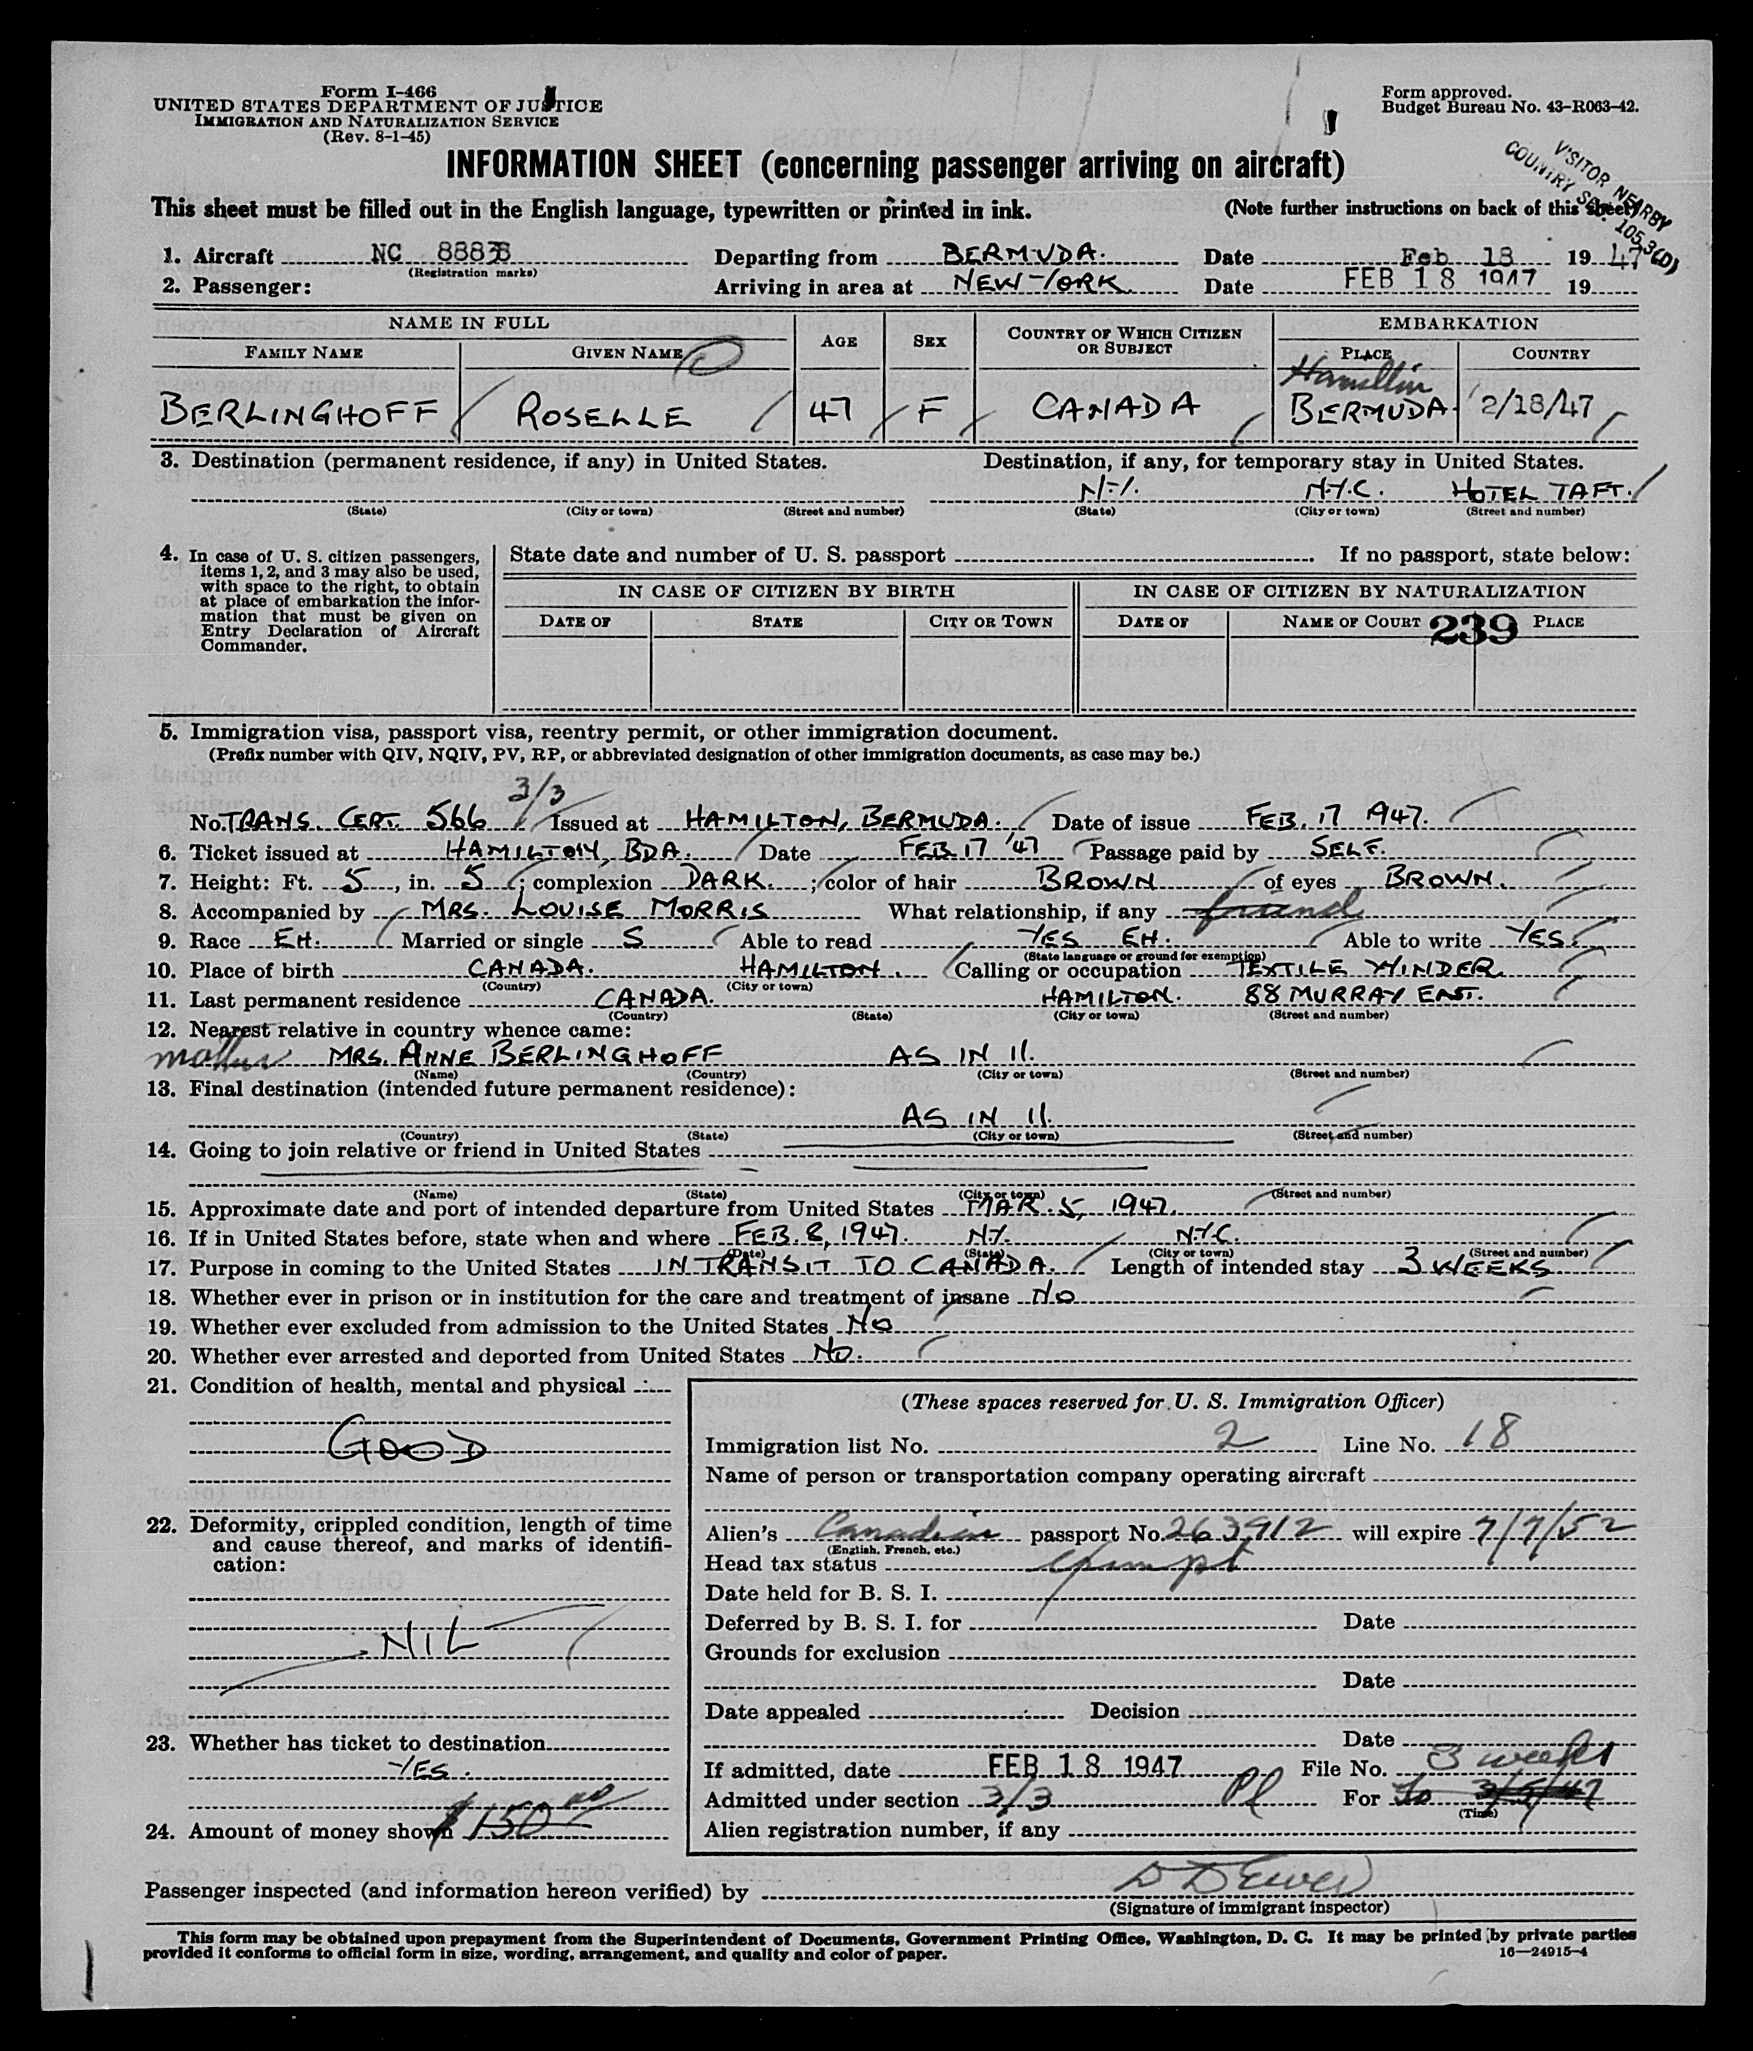 Form I-466
UNITED STATES DEPARTMENT OF JUSTICE
IMMIGRATION AND NATURALIZATION SERVICE
(Rev. 8-1-45)
Form approved.
Budget Bureau No. 43-R063-42.
INFORMATION SHEET (concerning passenger arriving on aircraft)
VISITOR NEARBY
COUNTRY SEC. 105.3(D)
This sheet must be filled out in the English language, typewritten or printed in ink. (Note further instructions on back of this sheet)
1. Aircraft NC 88838 Departing from BERMUDA. Date Feb 18 19 47
(Registration marks)
2. Passenger: Arriving in area at NEW YORK. Date FEB 18 1947 19
NAME IN FULL AGE SEX COUNTRY OF WHICH CITIZEN OR SUBJECT EMBARKATION
FAMILY NAME GIVEN NAME PLACE COUNTRY
Hamilton
BERLINGHOFF ROSELLE 47 F CANADA BERMUDA 2/18/47
3. Destination (permanent residence, if any) in United States. Destination, if any, for temporary stay in United States.
N.Y. N.Y.C. HOTEL TAFT.
(State) (City or town) (Street and number) (State) (City or town) (Street and number)
4. In case of U. S. citizen passengers, items 1, 2, and 3 may also be used, with space to the right, to obtain at place of embarkation the information that must be given on Entry Declaration of Aircraft Commander.
State date and number of U. S. passport If no passport, state below:
IN CASE OF CITIZEN BY BIRTH IN CASE OF CITIZEN BY NATURALIZATION
DATE OF STATE CITY OR TOWN DATE OF NAME OF COURT 239 PLACE
5. Immigration visa, passport visa, reentry permit, or other immigration document.
(Prefix number with QIV, NQIV, PV, RP, or abbreviated designation of other immigration documents, as case may be.)
3/3
No. TRANS. CERT. 566 Issued at HAMILTON, BERMUDA. Date of issue FEB. 17 1947.
6. Ticket issued at HAMILTON, BDA. Date FEB 17 '47 Passage paid by SELF.
7. Height: Ft. 5, in. 5; complexion DARK.; color of hair BROWN of eyes BROWN.
8. Accompanied by MRS. LOUISE MORRIS What relationship, if any friend
9. Race EH. Married or single S Able to read YES EH. Able to write YES.
(State language or ground for exemption)
10. Place of birth CANADA. HAMILTON. Calling or occupation TEXTILE WINDER.
(Country) (City or town)
11. Last permanent residence CANADA. HAMILTON. 88 MURRAY EAST.
(Country) (State) (City or town) (Street and number)
12. Nearest relative in country whence came:
mother MRS. ANNE BERLINGHOFF AS IN 11.
(Name) (Country) (City or town) (Street and number)
13. Final destination (intended future permanent residence):
AS IN 11.
(Country) (State) (City or town) (Street and number)
14. Going to join relative or friend in United States
(Name) (State) (City or town) (Street and number)
15. Approximate date and port of intended departure from United States MAR. 5, 1947.
16. If in United States before, state when and where FEB. 8, 1947. N.Y. N.Y.C.
(Date) (State) (City or town) (Street and number)
17. Purpose in coming to the United States IN TRANSIT TO CANADA. Length of intended stay 3 WEEKS
18. Whether ever in prison or in institution for the care and treatment of insane NO
19. Whether ever excluded from admission to the United States NO
20. Whether ever arrested and deported from United States NO.
21. Condition of health, mental and physical
GOOD
22. Deformity, crippled condition, length of time and cause thereof, and marks of identification:
NIL
23. Whether has ticket to destination
YES.
24. Amount of money shown $150.00
(These spaces reserved for U. S. Immigration Officer)
Immigration list No. 2 Line No. 18
Name of person or transportation company operating aircraft
Alien's Canadian passport No. 263912 will expire 7/7/52
(English, French, etc.)
Head tax status exempt
Date held for B. S. I.
Deferred by B. S. I. for Date
Grounds for exclusion
Date
Date appealed Decision
Date
If admitted, date FEB 18 1947 File No. 3 weeks
Admitted under section 3/3 Pl For To 3/5/47
(Time)
Alien registration number, if any
Passenger inspected (and information hereon verified) by
(Signature of immigrant inspector)
This form may be obtained upon prepayment from the Superintendent of Documents, Government Printing Office, Washington, D. C. It may be printed by private parties
provided it conforms to official form in size, wording, arrangement, and quality and color of paper. 16—24915-4